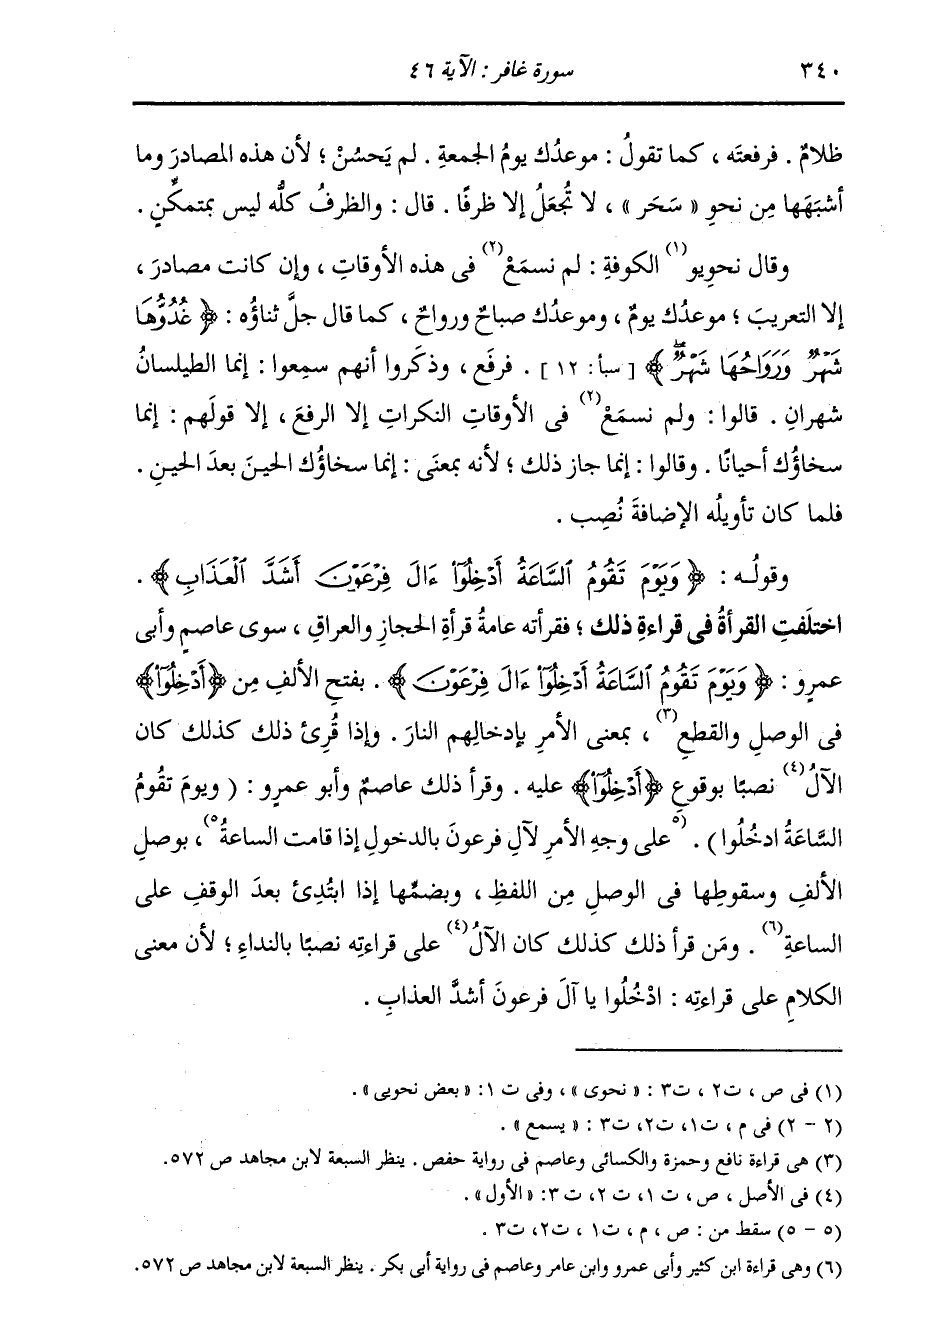 ٣٤٠ سورة غافر : الآية ٤٦
ظلامٌ . فرفعتَه ، كما تقولُ : موعدُك يومُ الجمعةِ . لم يَحسُنْ ؛ لأن هذه المصادرَ وما
أشبَهَها مِن نحوِ « سَحَر » ، لا تُجعَلُ إلا ظرفًا . قال : والظرفُ كلُّه ليس بمتمكِّنٍ .
وقال نحويو(١) الكوفةِ : لم نسمَعْ(٢) فى هذه الأوقاتِ ، وإن كانت مصادرَ ،
إلا التعريبَ ؛ موعدُك يومٌ ، وموعدُك صباحٌ ورواحٌ ، كما قال جلَّ ثناؤُه : ﴿ غُدُوُّهَا
شَهْرٌ وَرَوَاحُهَا شَهْرٌ ۖ﴾ [ سبأ: ١٢ ] . فرفَع ، وذكَروا أنهم سمِعوا : إنما الطيلسانُ
شهرانِ . قالوا : ولم نسمَعْ(٢) فى الأوقاتِ النكراتِ إلا الرفعَ ، إلا قولَهم : إنما
سخاؤُك أحيانًا . وقالوا : إنما جاز ذلك ؛ لأنه بمعنَى : إنما سخاؤُك الحينَ بعدَ الحينِ .
فلما كان تأويلُه الإضافةَ نُصِب .
وقولُه : ﴿ وَيَوْمَ تَقُومُ ٱلسَّاعَةُ أَدْخِلُوٓا۟ ءَالَ فِرْعَوْنَ أَشَدَّ ٱلْعَذَابِ ﴾ .
اختلَفتِ القرأةُ فى قراءةِ ذلك ؛ فقرأته عامةُ قرأةِ الحجازِ والعراقِ ، سوى عاصمٍ وأبى
عمرٍو : ﴿ وَيَوْمَ تَقُومُ ٱلسَّاعَةُ أَدْخِلُوٓا۟ ءَالَ فِرْعَوْنَ ﴾ . بفتحِ الألفِ مِن ﴿أَدْخِلُوٓا۟﴾
فى الوصلِ والقطعِ(٣) ، بمعنى الأمرِ بإدخالِهم النارَ . وإذا قُرِئ ذلك كذلك كان
الآلُ(٤) نصبًا بوقوعِ ﴿أَدْخِلُوٓا۟﴾ عليه . وقرأ ذلك عاصمٌ وأبو عمرٍو : ( ويومَ تقُومُ
السَّاعَةُ ادخُلُوا ) . (٥على وجهِ الأمرِ لآلِ فرعونَ بالدخولِ إذا قامت الساعةُ٥) ، بوصلِ
الألفِ وسقوطِها فى الوصلِ مِن اللفظِ ، وبضمِّها إذا ابتُدِئ بعدَ الوقفِ على
الساعةِ(٦) . ومَن قرأ ذلك كذلك كان الآلُ(٤) على قراءتِه نصبًا بالنداءِ ؛ لأن معنى
الكلامِ على قراءتِه : ادْخُلُوا يا آلَ فرعونَ أشدَّ العذابِ .
(١) فى ص ، ت٢ ، ت٣ : « نحوى » ، وفى ت ١: « بعض نحويى » .
(٢ - ٢) فى م ، ت١، ت٢، ت٣ : « يسمع » .
(٣) هى قراءة نافع وحمزة والكسائى وعاصم فى رواية حفص . ينظر السبعة لابن مجاهد ص ٥٧٢.
(٤) فى الأصل ، ص ، ت ١، ت ٢، ت ٣: « الأول » .
(٥ - ٥) سقط من : ص ، م ، ت١ ، ت٢، ت٣ .
(٦) وهى قراءة ابن كثير وأبى عمرو وابن عامر وعاصم فى رواية أبى بكر . ينظر السبعة لابن مجاهد ص ٥٧٢.